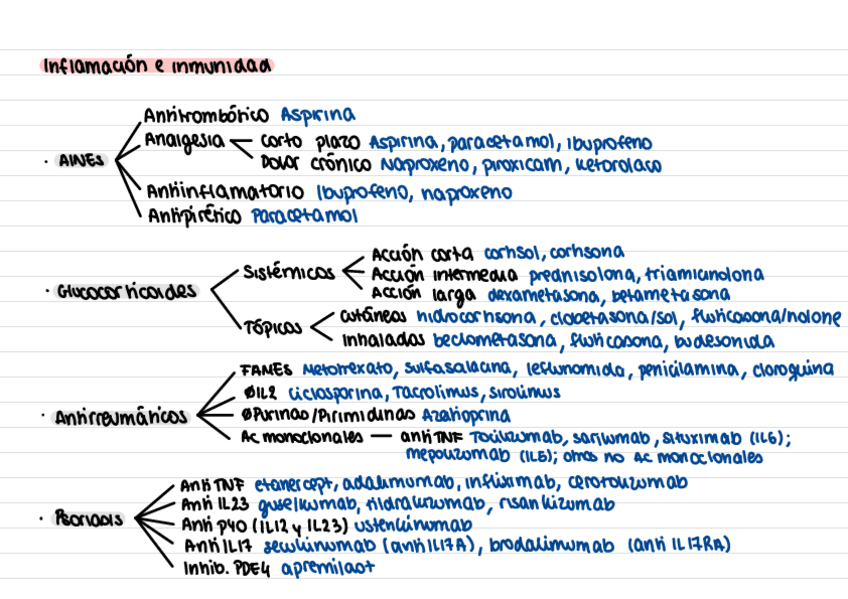 Inflamación e inmunidad
Antitrombótico Aspirina
Analgesia corto plazo Aspirina, paracetamol, ibuprofeno
Dolor crónico Naproxeno, piroxicam, ketorolaco
· AINES
Antiinflamatorio Ibuprofeno, naproxeno
Antipirético Paracetamol
Acción corta cortisol, cortisona
Sistémicos Acción intermedia prednisolona, triamicinolona
Acción larga dexametasona, betametasona
· Glucocorticoides
Tópicos cutáneos hidrocortisona, clobetasona/sol, fluticasona/nolone
Inhalados beclometasona, fluticasona, budesonida
FAMES Metotrexato, sulfasalacina, leflunomida, penicilamina, cloroquina
ØIL2 ciclosporina, Tacrolimus, sirolimus
· Antirreumáticos ØPurinas/Pirimidinas Azatioprina
Ac monoclonales — anti TNF Tocilizumab, sarilumab, situximab (IL6);
mepolizumab (IL5); otros no Ac monoclonales
Anti TNF etanercept, adalimumab, infliximab, certolizumab
Anti IL23 guselkumab, tildrakizumab, risankizumab
· Psoriasis Anti p40 (IL12 y IL23) ustenkinumab
Anti IL17 secukinumab (anti IL17A), brodalimumab (anti IL17RA)
Inhib. PDE4 apremilast